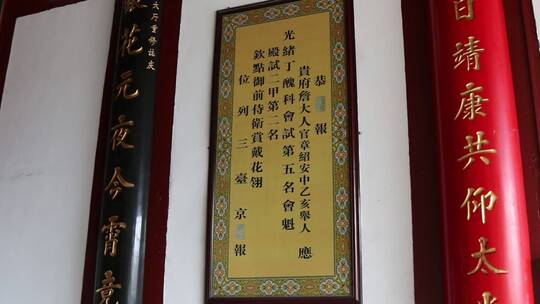 恭報
貴府詹大人官章紹安中乙亥舉人應
光緒丁醜科會試第五名會魁
殿試二甲第二名
欽點御前侍衛賞戴花翎
位列三臺京報
日靖康共仰太
花元夜今霄竟